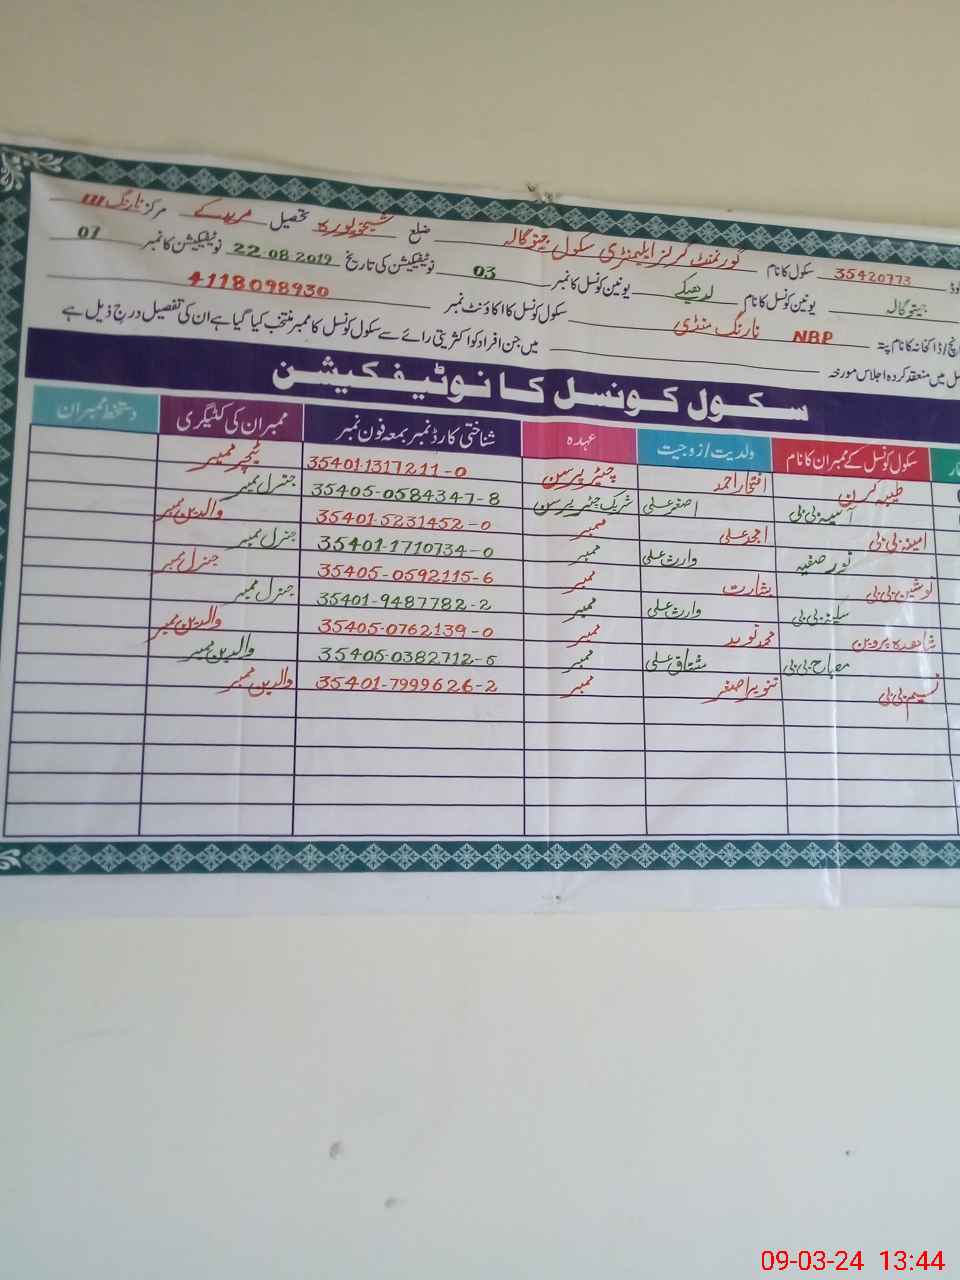 کوڈ 35420773 سکول کا نام گورنمنٹ گرلز ایلیمنٹری سکول جیتوگالہ ضلع شیخوپورہ تحصیل مریدکے مرکز نارنگ III
جیتوگالہ یونین کونسل کا نام لدھیکے یونین کونسل کا نمبر 03 نوٹیفکیشن کی تاریخ 22-08-2019 نوٹیفکیشن کا نمبر 01
برانچ/ڈاکخانہ کا نام پتہ NBP نارنگ منڈی سکول کونسل کا اکاؤنٹ نمبر 4118098930
میں منعقد کردہ اجلاس مورخہ میں جن افراد کو اکثریتی رائے سے سکول کونسل کا ممبر منتخب کیا گیا ہے ان کی تفصیل درج ذیل ہے
سکول کونسل کا نوٹیفکیشن
سکول کونسل کے ممبران کا نام ولدیت/زوجیت عہدہ شناختی کارڈ نمبر بمعہ فون نمبر ممبران کی کٹیگری دستخط ممبران
طیبہ کرن افتخار احمد چیئر پرسن 35401-1317211-0 ٹیچر ممبر
آسیہ بی بی اصغر علی شریک چیئر پرسن 35405-0584347-8 جنرل ممبر
امینہ بی بی امجد علی ممبر 35401-5231452-0 والدین ممبر
نور صفیہ وارث علی ممبر 35401-1710734-0 جنرل ممبر
نوشین بی بی بشارت ممبر 35405-0592115-6 جنرل ممبر
سکینہ بی بی وارث علی ممبر 35401-9487782-2 جنرل ممبر
شاھدہ پروین محمد نوید ممبر 35405-0762139-0 والدین ممبر
مصباح بی بی مشتاق علی ممبر 35405-0382712-6 والدین ممبر
نسیم بی بی تنویر اصغر ممبر 35401-7999626-2 والدین ممبر
09-03-24 13:44